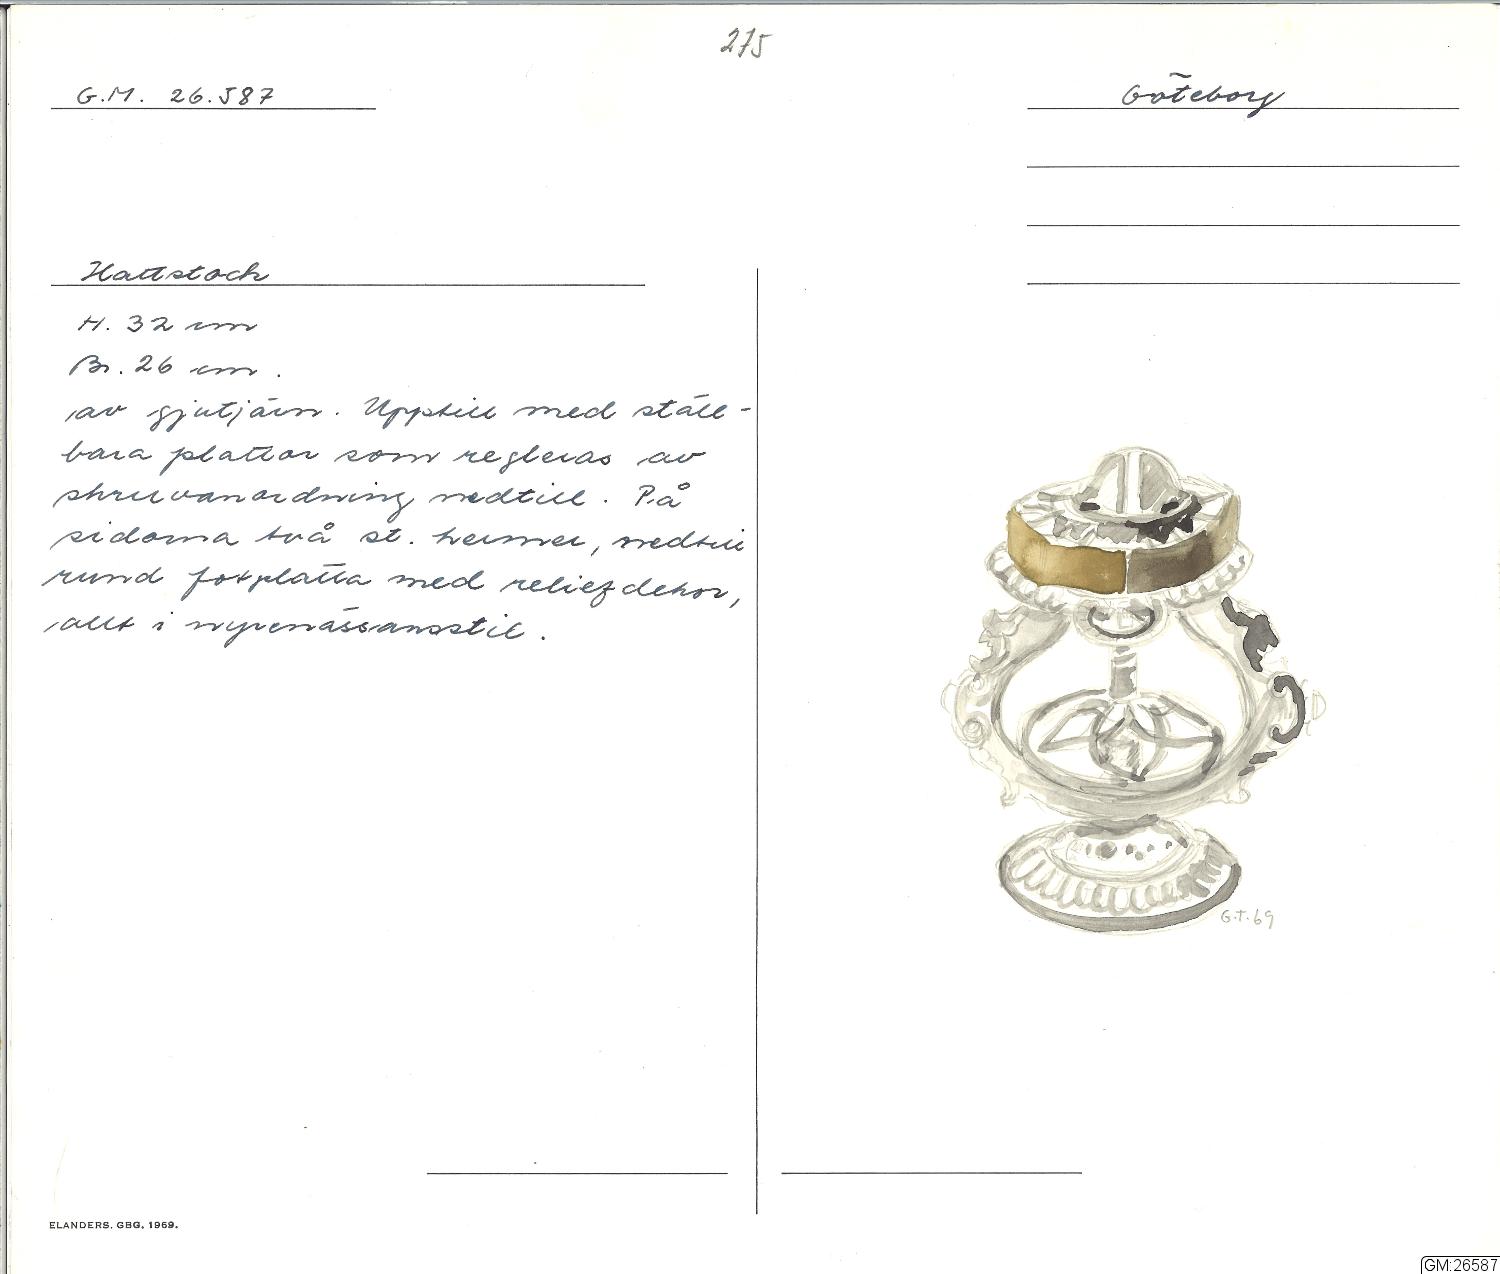 275
G.M. 26.587
Göteborg
Hattstock
H. 32 cm
Br. 26 cm.
av gjutjärn. Upptill med ställ-
bara plattor som regleras av
skruvanordning nedtill. På
sidorna två st. hermer, nedtill
rund fotplatta med reliefdekor,
allt i nyrenässansstil.
G.T. 69
ELANDERS. GBG. 1969.
GM:26587